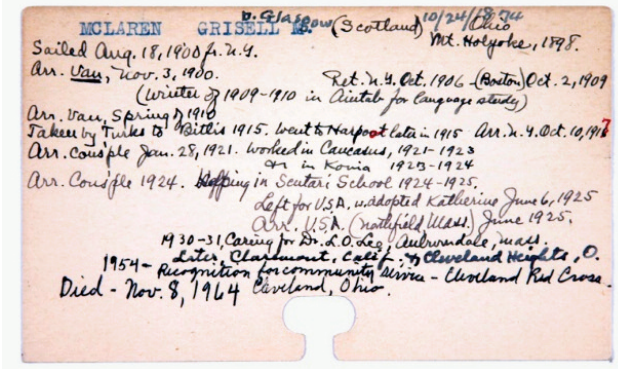 b. Glasgow (Scotland) 10/24/1874 Ohio
MCLAREN GRISELL M.
Mt. Holyoke, 1898.
Sailed Aug. 18, 1900 fr. N.Y.
Arr. Van, Nov. 3, 1900. Ret. N.Y. Oct. 1906 - (Boston) Oct. 2, 1909
(Winter of 1909-1910 in Aintab for language study)
Arr. Van, Spring of 1910
Taken by Turks to Bitlis 1915. Went to Harpoot late in 1915 Arr. N.Y. Oct. 10, 1917
Arr. Cons'ple Jan. 28, 1921. Worked in Caucasus, 1921-1923
in Konia 1923-1924
Arr. Cons'ple 1924. Helping in Scutari School 1924-1925.
Left for U.S.A. w. adopted Katherine June 6, 1925
Arr. U.S.A. (Northfield, Mass.) June 1925.
1930-31, Caring for Dr. L.O. Lee, Auburndale, Mass.
Later, Claremont, Calif. & Cleveland Heights, O.
1954 - Recognition for community service - Cleveland Red Cross.
Died - Nov. 8, 1964 Cleveland, Ohio.